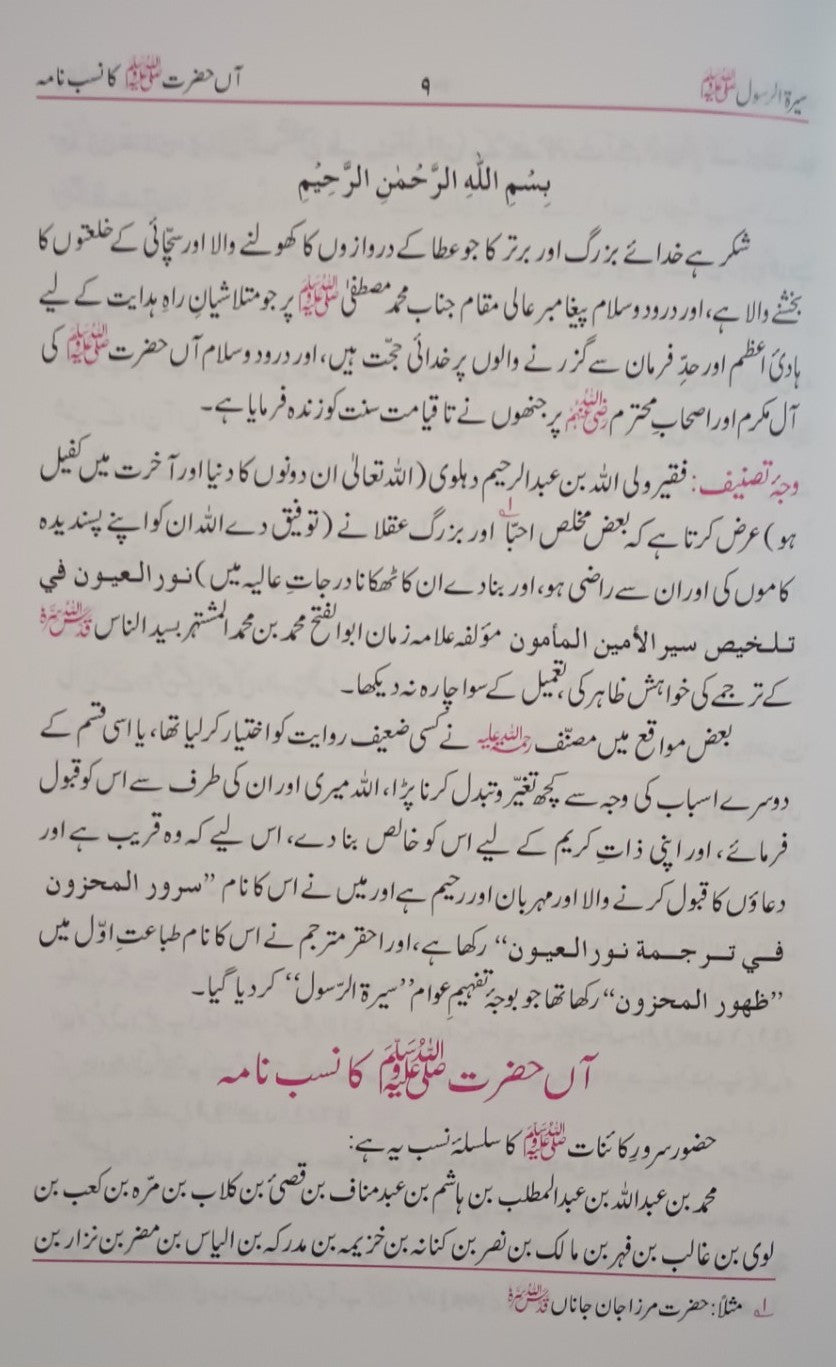 سیرۃ الرسول ﷺ ۹ آں حضرت ﷺ کا نسب نامہ
بِسْمِ اللّٰهِ الرَّحْمٰنِ الرَّحِيْمِ
شکر ہے خدائے بزرگ اور برتر کا جو عطا کے دروازوں کا کھولنے والا اور سچّائی کے خلعتوں کا
بخشنے والا ہے، اور درود و سلام پیغامبر عالی مقام جناب محمد مصطفیٰ ﷺ پر جو متلاشیانِ راہِ ہدایت کے لیے
ہادیٔ اعظم اور حدِّ فرمان سے گزرنے والوں پر خدائی حجّت ہیں، اور درود و سلام آں حضرت ﷺ کی
آل مکرم اور اصحابِ محترم رضی اللہ عنہم پر جنھوں نے تا قیامت سنت کو زندہ فرمایا ہے۔
وجۂ تصنیف: فقیر ولی اللہ بن عبدالرحیم دہلوی (اللہ تعالیٰ ان دونوں کا دنیا اور آخرت میں کفیل
ہو) عرض کرتا ہے کہ بعض مخلص احبّا۱ اور بزرگ عقلا نے (توفیق دے اللہ ان کو اپنے پسندیدہ
کاموں کی اور ان سے راضی ہو، اور بنا دے ان کا ٹھکانا درجاتِ عالیہ میں) نور العيون في
تلخيص سير الأمين المأمون مؤلفہ علامہ زمان ابوالفتح محمد بن محمد المشتہر بسید الناس قدس اللہ سرہ
کے ترجمے کی خواہش ظاہر کی، تعمیل کے سوا چارہ نہ دیکھا۔
بعض مواقع میں مصنّف رحمۃ اللہ علیہ نے کسی ضعیف روایت کو اختیار کر لیا تھا، یا اسی قسم کے
دوسرے اسباب کی وجہ سے کچھ تغیّر و تبدل کرنا پڑا، اللہ میری اور ان کی طرف سے اس کو قبول
فرمائے، اور اپنی ذاتِ کریم کے لیے اس کو خالص بنا دے، اس لیے کہ وہ قریب ہے اور
دعاؤں کا قبول کرنے والا اور مہربان اور رحیم ہے اور میں نے اس کا نام ”سرور المحزون
في ترجمة نور العيون“ رکھا ہے، اور احقر مترجم نے اس کا نام طباعتِ اوّل میں
”ظهور المحزون“ رکھا تھا جو بوجۂ تفہیمِ عوام ”سیرۃ الرّسول“ کر دیا گیا۔
آں حضرت ﷺ کا نسب نامہ
حضور سرورِ کائنات ﷺ کا سلسلۂ نسب یہ ہے:
محمد بن عبداللہ بن عبدالمطلب بن ہاشم بن عبد مناف بن قصیّ بن کلاب بن مرّہ بن کعب بن
لوی بن غالب بن فہر بن مالک بن نصر بن کنانہ بن خزیمہ بن مدرکہ بن الیاس بن مضر بن نزار بن
۱ مثلاً: حضرت مرزا جان جاناں قدس اللہ سرہ